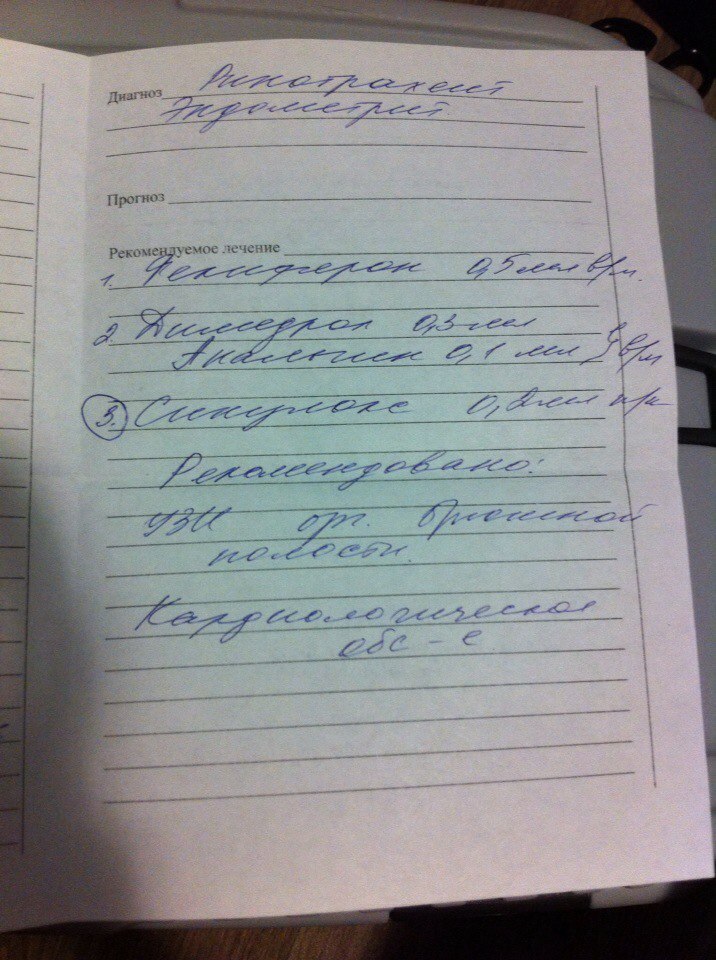 Диагноз Ринотрахеит
Эндометрит
Прогноз
Рекомендуемое лечение
1. Фелиферон 0,5 мл в/м.
2. Димедрол 0,3 мл
Анальгин 0,1 мл } в/м
3. Синулокс 0,2 мл п/к
Рекомендовано:
УЗИ орг. брюшной
полости.
Кардиологическое
обс-е